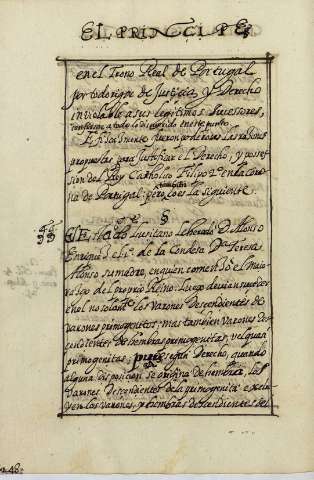 EL PRINCIPE
en el Trono Real de Portugal
por todo rigor de Justicia, y Derecho
inviolable a sus legitimos Sucessores,
conforme a todo lo discurrido en este punto.
fueron poderosas las rasones
propuestas para justificar el Derecho, y posses-
sion del Rey Catholico Filipo 2º en la Coro-
na de Portugal: pero es la siguiente:
tambien
§
El Lusitano heredó D. Alonso
Enriquez de la Condesa Dª Teresa
Alonso su madre, en quien comensó el Maio-
rasgo del proprio Reino: Luego devian suceder
en el no solamte los varones descendientes de
varones primogenitos; mas tambien varones des-
cendientes de hembras primogenitas, vel quasi
primogenitas; pues, segun Derecho, quando
alguna disposicion se origina de hembra, los
varones descendientes de la primogenita exclu-
yen los varones, y hembras descendientes del